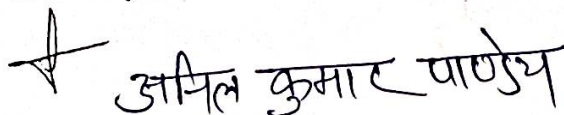 अनिल कुमार पाण्डेय